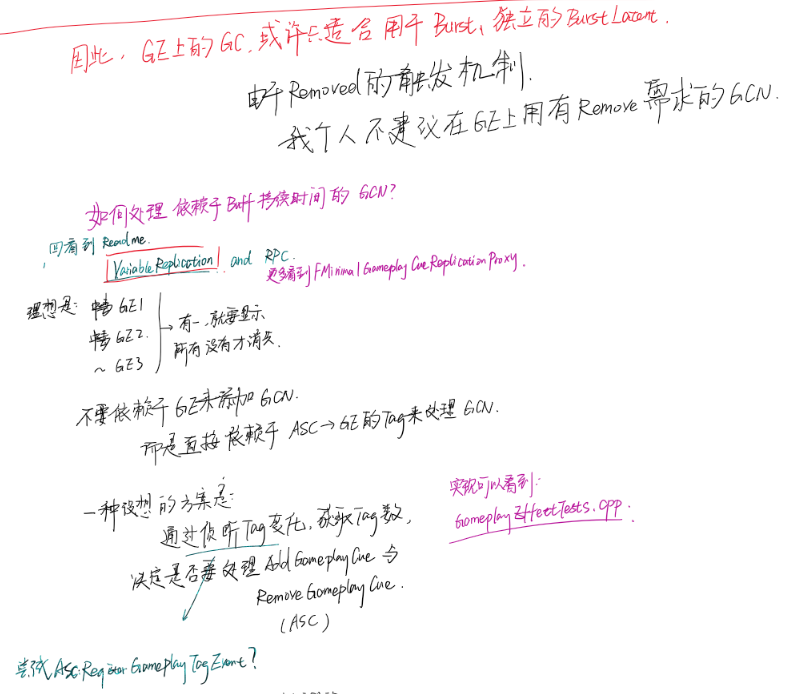 因此，GE上的GC，或许只适合用于Burst，独立的BurstLatent.
由于Removed的触发机制.
我个人不建议在GE上用有Remove需求的GCN.
如何处理 依赖于Buff持续时间的 GCN?
回看到 Readme.
VariableReplication and RPC.
更多看到 FMinimalGameplayCueReplicationProxy.
理想是: 中毒 GE1
中毒 GE2.
~ GE3
有一，就要显示
所有没有才消失.
不要依赖于GE来添加GCN.
而是直接依赖于 ASC→GE的Tag来处理GCN.
一种设想的方案是:
通过侦听Tag变化，获取Tag数，
决定是否要处理 Add GameplayCue 与
Remove GameplayCue.
(ASC)
实现可以看到:
GameplayEffectTests.cpp.
尝试 ASC:Register GameplayTagEvent?